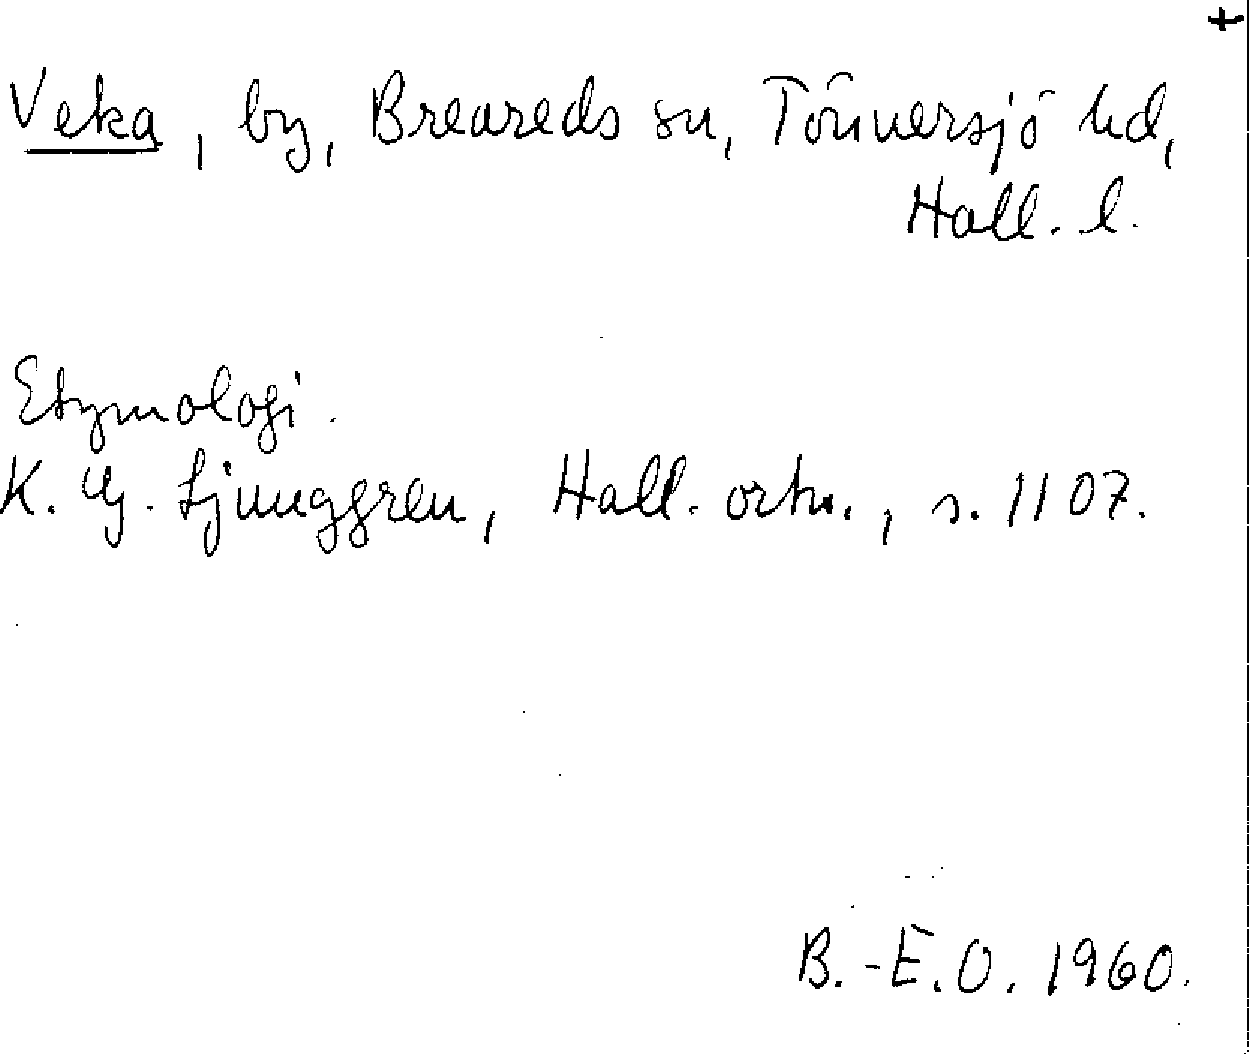 +
Veka, by, Breareds sn, Tönnersjö hd,
Hall. l.
Etymologi.
K. G. Ljunggren, Hall. ortn., s. 1107.
B.-E.O. 1960.